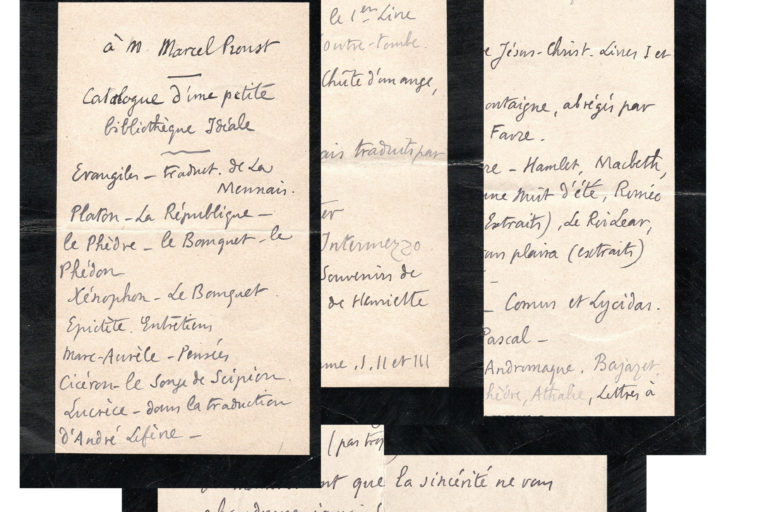 à M. Marcel Proust
Catalogue d'une petite
bibliothèque Idéale
Evangiles - traduct. de La
Mennais.
Platon - La République -
le Phèdre - le Banquet - le
Phédon
Xénophon - Le Banquet.
Epictète. Entretiens
Marc-Aurèle - Pensées
Cicéron - le Songe de Scipion.
Lucrèce - dans la traduction
d'André Lefèvre -
le 1er Livre
outre-tombe.
Chûte d'un ange,
ais traduits par
ter
Intermezzo.
Souvenirs de
de Henriette
me, I, II et III
e Jésus-Christ. Livres I et
ontaigne, abrégés par
Favre.
re - Hamlet, Macbeth,
une Nuit d'été, Roméo
Extraits), Le Roi Lear,
ous plaira (extraits)
-
- Comus et Lycidas.
Pascal -
Andromaque. Bajazet.
hèdre, Athalie, Lettres à
(pas trop
ent que la sincérité ne vous